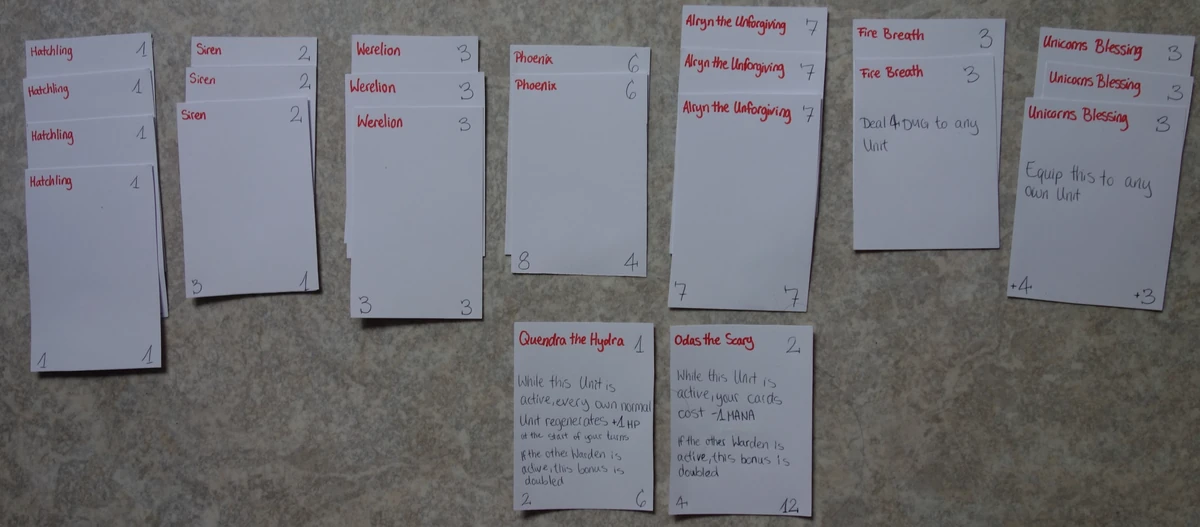 Hatchling 1
Hatchling 1
Hatchling 1
Hatchling 1
1 1
Siren 2
Siren 2
Siren 2
3 1
Werelion 3
Werelion 3
Werelion 3
3 3
Phoenix 6
Phoenix 6
8 4
Alryn the Unforgiving 7
Alryn the Unforgiving 7
Alryn the Unforgiving 7
7 7
Fire Breath 3
Fire Breath 3
Deal 4 DMG to any
Unit
Unicorns Blessing 3
Unicorns Blessing 3
Unicorns Blessing 3
Equip this to any
own Unit
+4 +3
Quendra the Hydra 1
While this Unit is
active, every own normal
Unit regenerates +1 HP
at the start of your turns
If the other Warden is
active, this bonus is
doubled
2 6
Odas the Scary 2
While this Unit is
active, your cards
cost -1 MANA
If the other Warden is
active, this bonus is
doubled
4 12